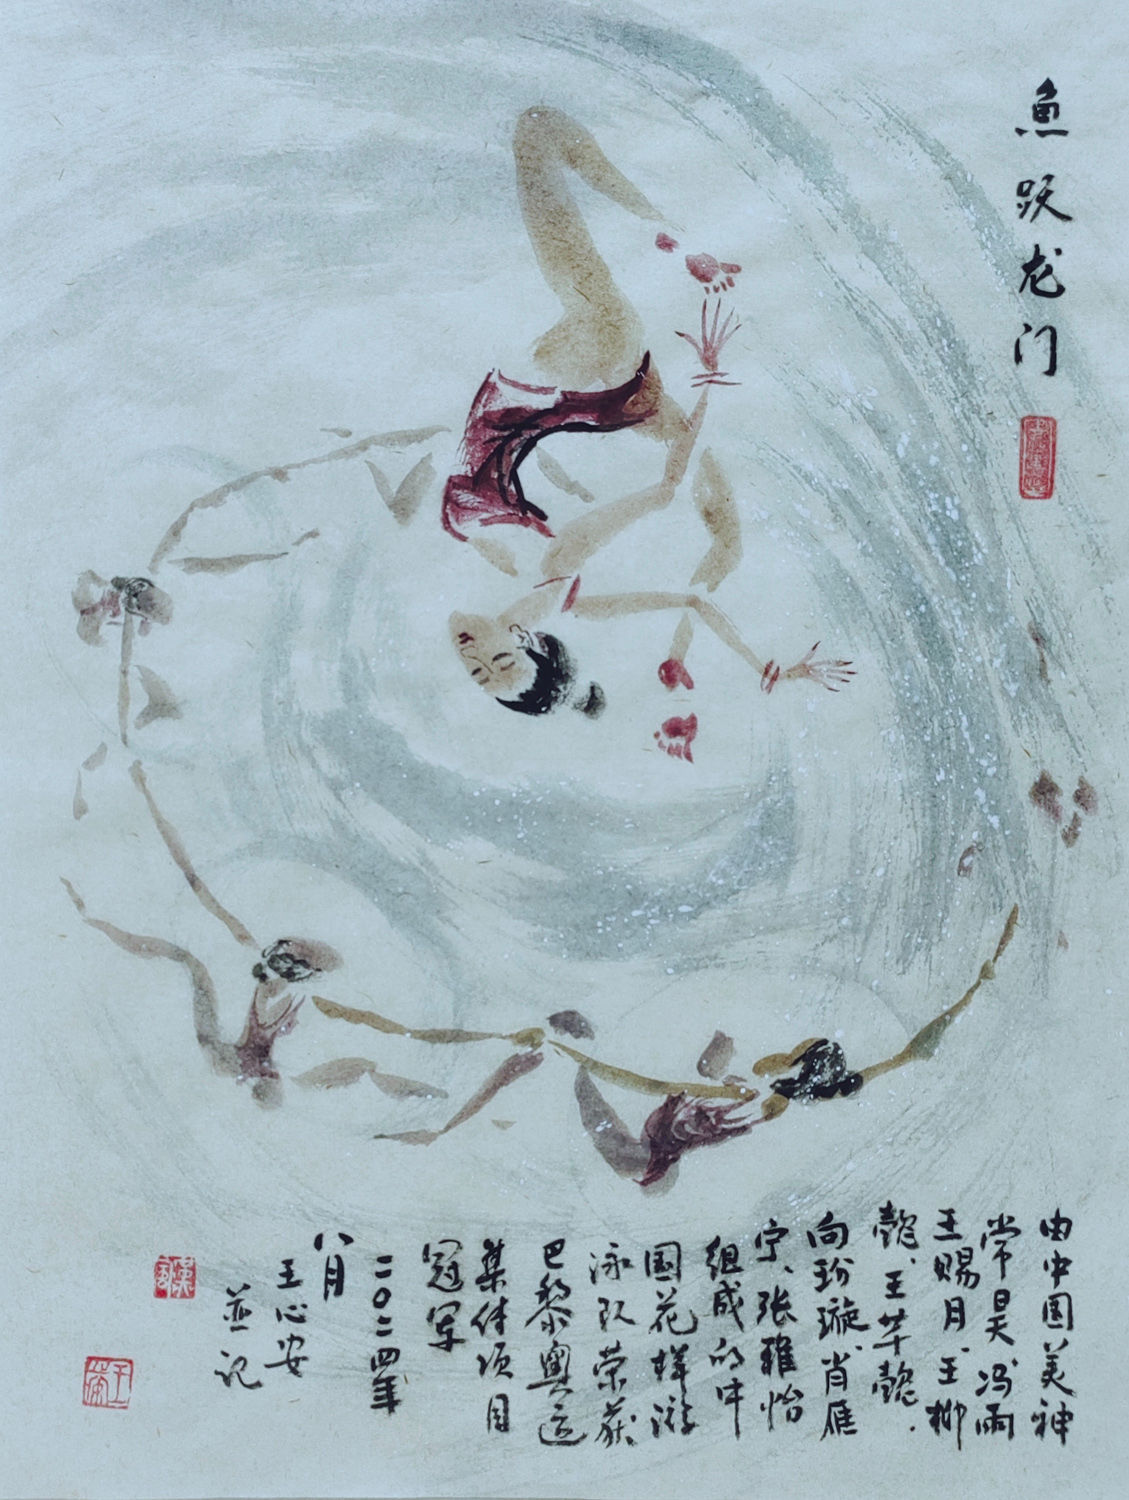 魚跃龙门
由中国美神
常昊、冯雨
王赐月、王柳
懿、王芊懿、
向玢璇、肖雁
宁、张雅怡
组成的中
国花样游
泳队荣获
巴黎奥运
集体项目
冠军
二〇二四年
八月
王心安
並记